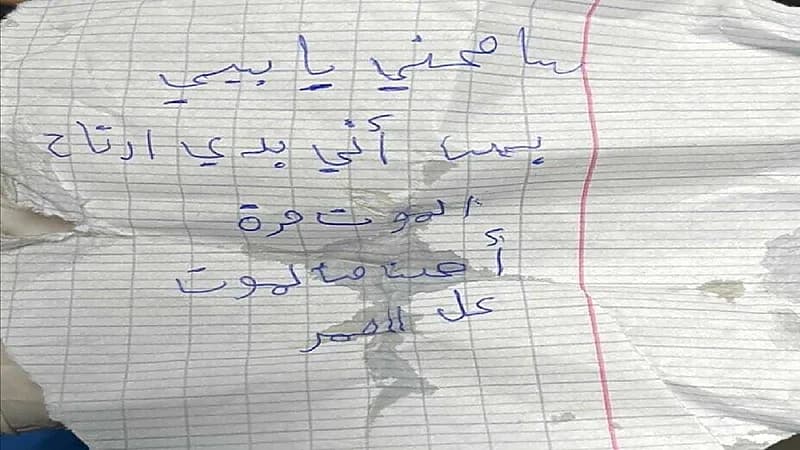 سامحني يا بيي
بس أني بدي ارتاح
الموت مرة
أحسن مالموت
عل العمر